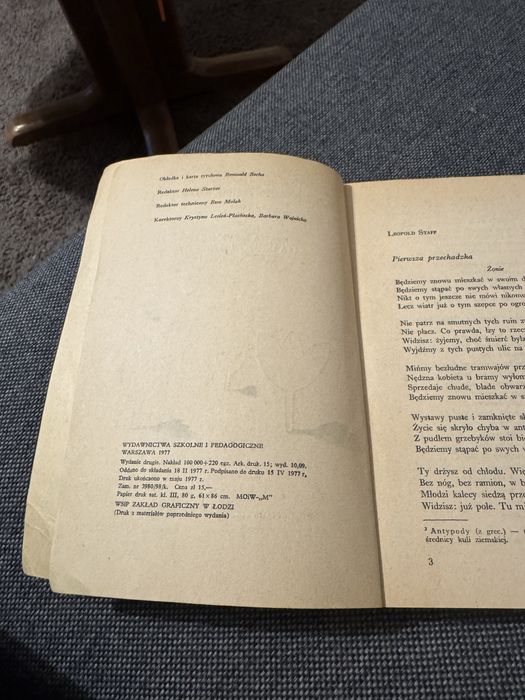 Okładka i karta tytułowa Romuald Socha
Redaktor Helena Starzec
Redaktor techniczny Ewa Molak
Korektorzy Krystyna Lesień-Płachecka, Barbara Wojnicka
WYDAWNICTWA SZKOLNE I PEDAGOGICZNE
WARSZAWA 1977
Wydanie drugie. Nakład 100 000+220 egz. Ark. druk. 15; wyd. 10,09.
Oddano do składania 18 II 1977 r. Podpisano do druku 15 IV 1977 r.
Druk ukończono w maju 1977 r.
Zam. nr 3980/98/k. Cena zł 15,—
Papier druk sat. kl. III, 80 g, 61×86 cm. MOiW-„M"
WSiP ZAKŁAD GRAFICZNY W ŁODZI
(Druk z materiałów poprzedniego wydania)
LEOPOLD STAFF
Pierwsza przechadzka
Żonie
Będziemy znowu mieszkać w swoim
Będziemy stąpać po swych własnych
Nikt o tym jeszcze nie mówi
Lecz wiatr już o tym szepce po
Nie patrz na smutnych tych ruin
Nie płacz. Co prawda, łzy to
Widzisz: żyjemy, choć śmierć była
Wyjdźmy z tych pustych ulic na
Mińmy bezludne tramwajów
Nędzna kobieta u bramy
Sprzedaje chude, blade
Będziemy znowu mieszkać w
Wystawy puste i zamknięte
Życie się skryło chyba w
Z pudłem grzebyków stoi
Będziemy stąpać po swych
Ty drżysz od chłodu.
Bez nóg, bez ramion, w
Młodzi kalecy siedzą
Widzisz: już pole. Tu
Antypody (z grec.) —
średnicy kuli ziemskiej.
3